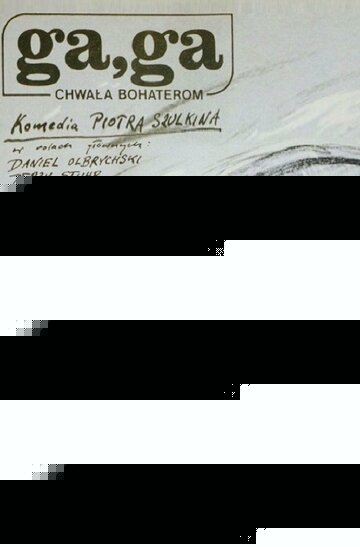 ga, ga
CHWAŁA BOHATEROM
Komedia PIOTRA SZULKINA
w rolach głównych:
DANIEL OLBRYCHSKI
JERZY STUHR